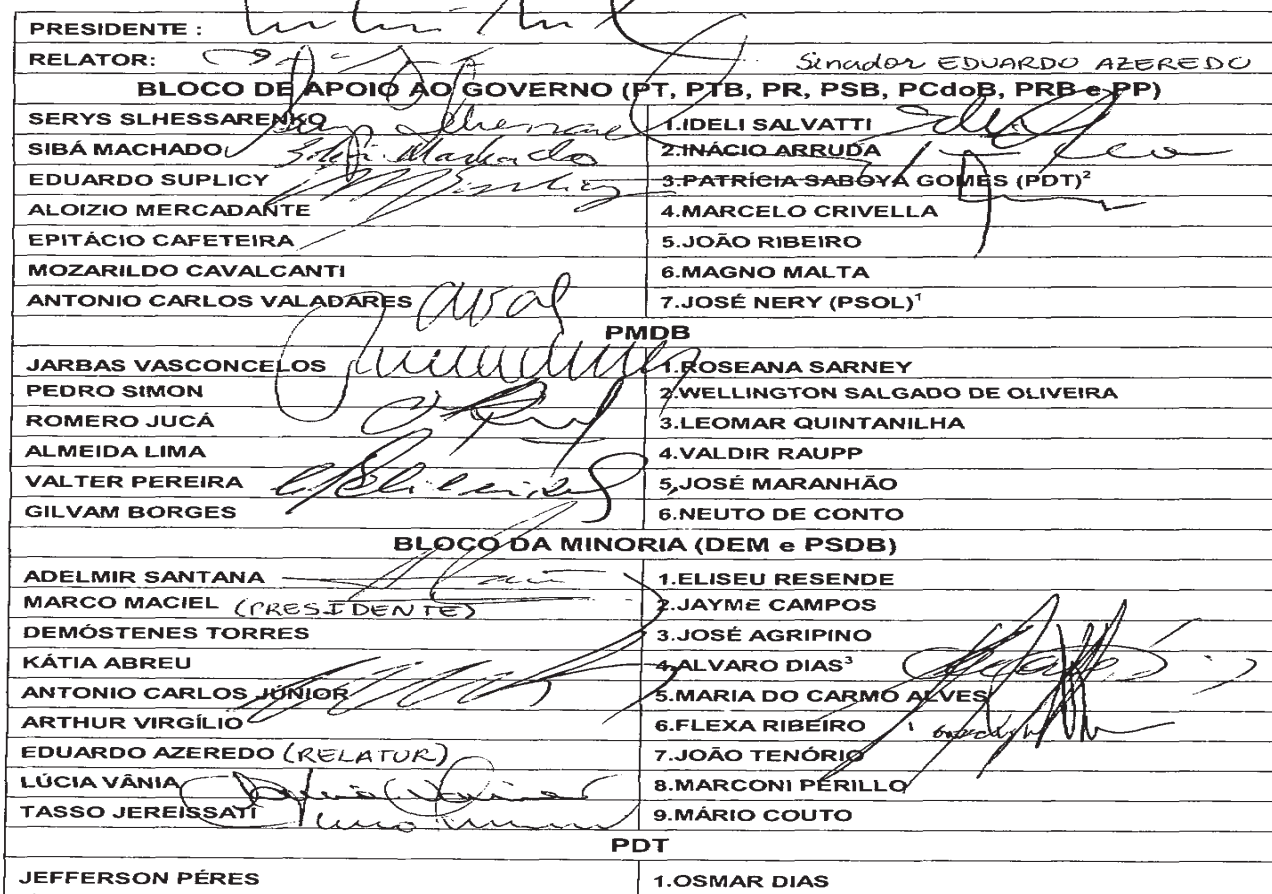 PRESIDENTE :
RELATOR: Senador EDUARDO AZEREDO
BLOCO DE APOIO AO GOVERNO (PT, PTB, PR, PSB, PCdoB, PRB e PP)
SERYS SLHESSARENKO 1.IDELI SALVATTI
SIBÁ MACHADO 2.INÁCIO ARRUDA
EDUARDO SUPLICY 3.PATRÍCIA SABOYA GOMES (PDT)²
ALOIZIO MERCADANTE 4.MARCELO CRIVELLA
EPITÁCIO CAFETEIRA 5.JOÃO RIBEIRO
MOZARILDO CAVALCANTI 6.MAGNO MALTA
ANTONIO CARLOS VALADARES 7.JOSÉ NERY (PSOL)¹
PMDB
JARBAS VASCONCELOS 1.ROSEANA SARNEY
PEDRO SIMON 2.WELLINGTON SALGADO DE OLIVEIRA
ROMERO JUCÁ 3.LEOMAR QUINTANILHA
ALMEIDA LIMA 4.VALDIR RAUPP
VALTER PEREIRA 5.JOSÉ MARANHÃO
GILVAM BORGES 6.NEUTO DE CONTO
BLOCO DA MINORIA (DEM e PSDB)
ADELMIR SANTANA 1.ELISEU RESENDE
MARCO MACIEL (PRESIDENTE) 2.JAYME CAMPOS
DEMÓSTENES TORRES 3.JOSÉ AGRIPINO
KÁTIA ABREU 4.ALVARO DIAS³
ANTONIO CARLOS JÚNIOR 5.MARIA DO CARMO ALVES
ARTHUR VIRGÍLIO 6.FLEXA RIBEIRO
EDUARDO AZEREDO (RELATOR) 7.JOÃO TENÓRIO
LÚCIA VÂNIA 8.MARCONI PERILLO
TASSO JEREISSATI 9.MÁRIO COUTO
PDT
JEFFERSON PÉRES 1.OSMAR DIAS